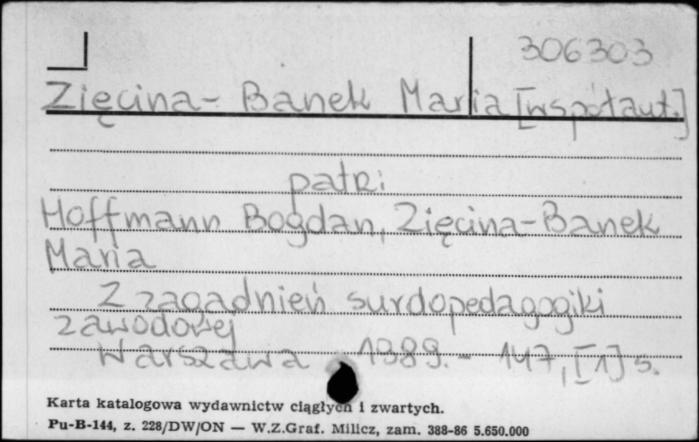 306303
Zięcina - Banek Maria [współaut.]
patrz:
Hoffmann Bogdan, Zięcina-Banek
Maria
Z zagadnień surdopedagogiki
zawodowej
Warszawa 1989. - 147, [1] s.
Karta katalogowa wydawnictw ciągłych i zwartych.
Pu-B-144, z. 228/DW/ON — W.Z.Graf. Milicz, zam. 388-86 5.650.000